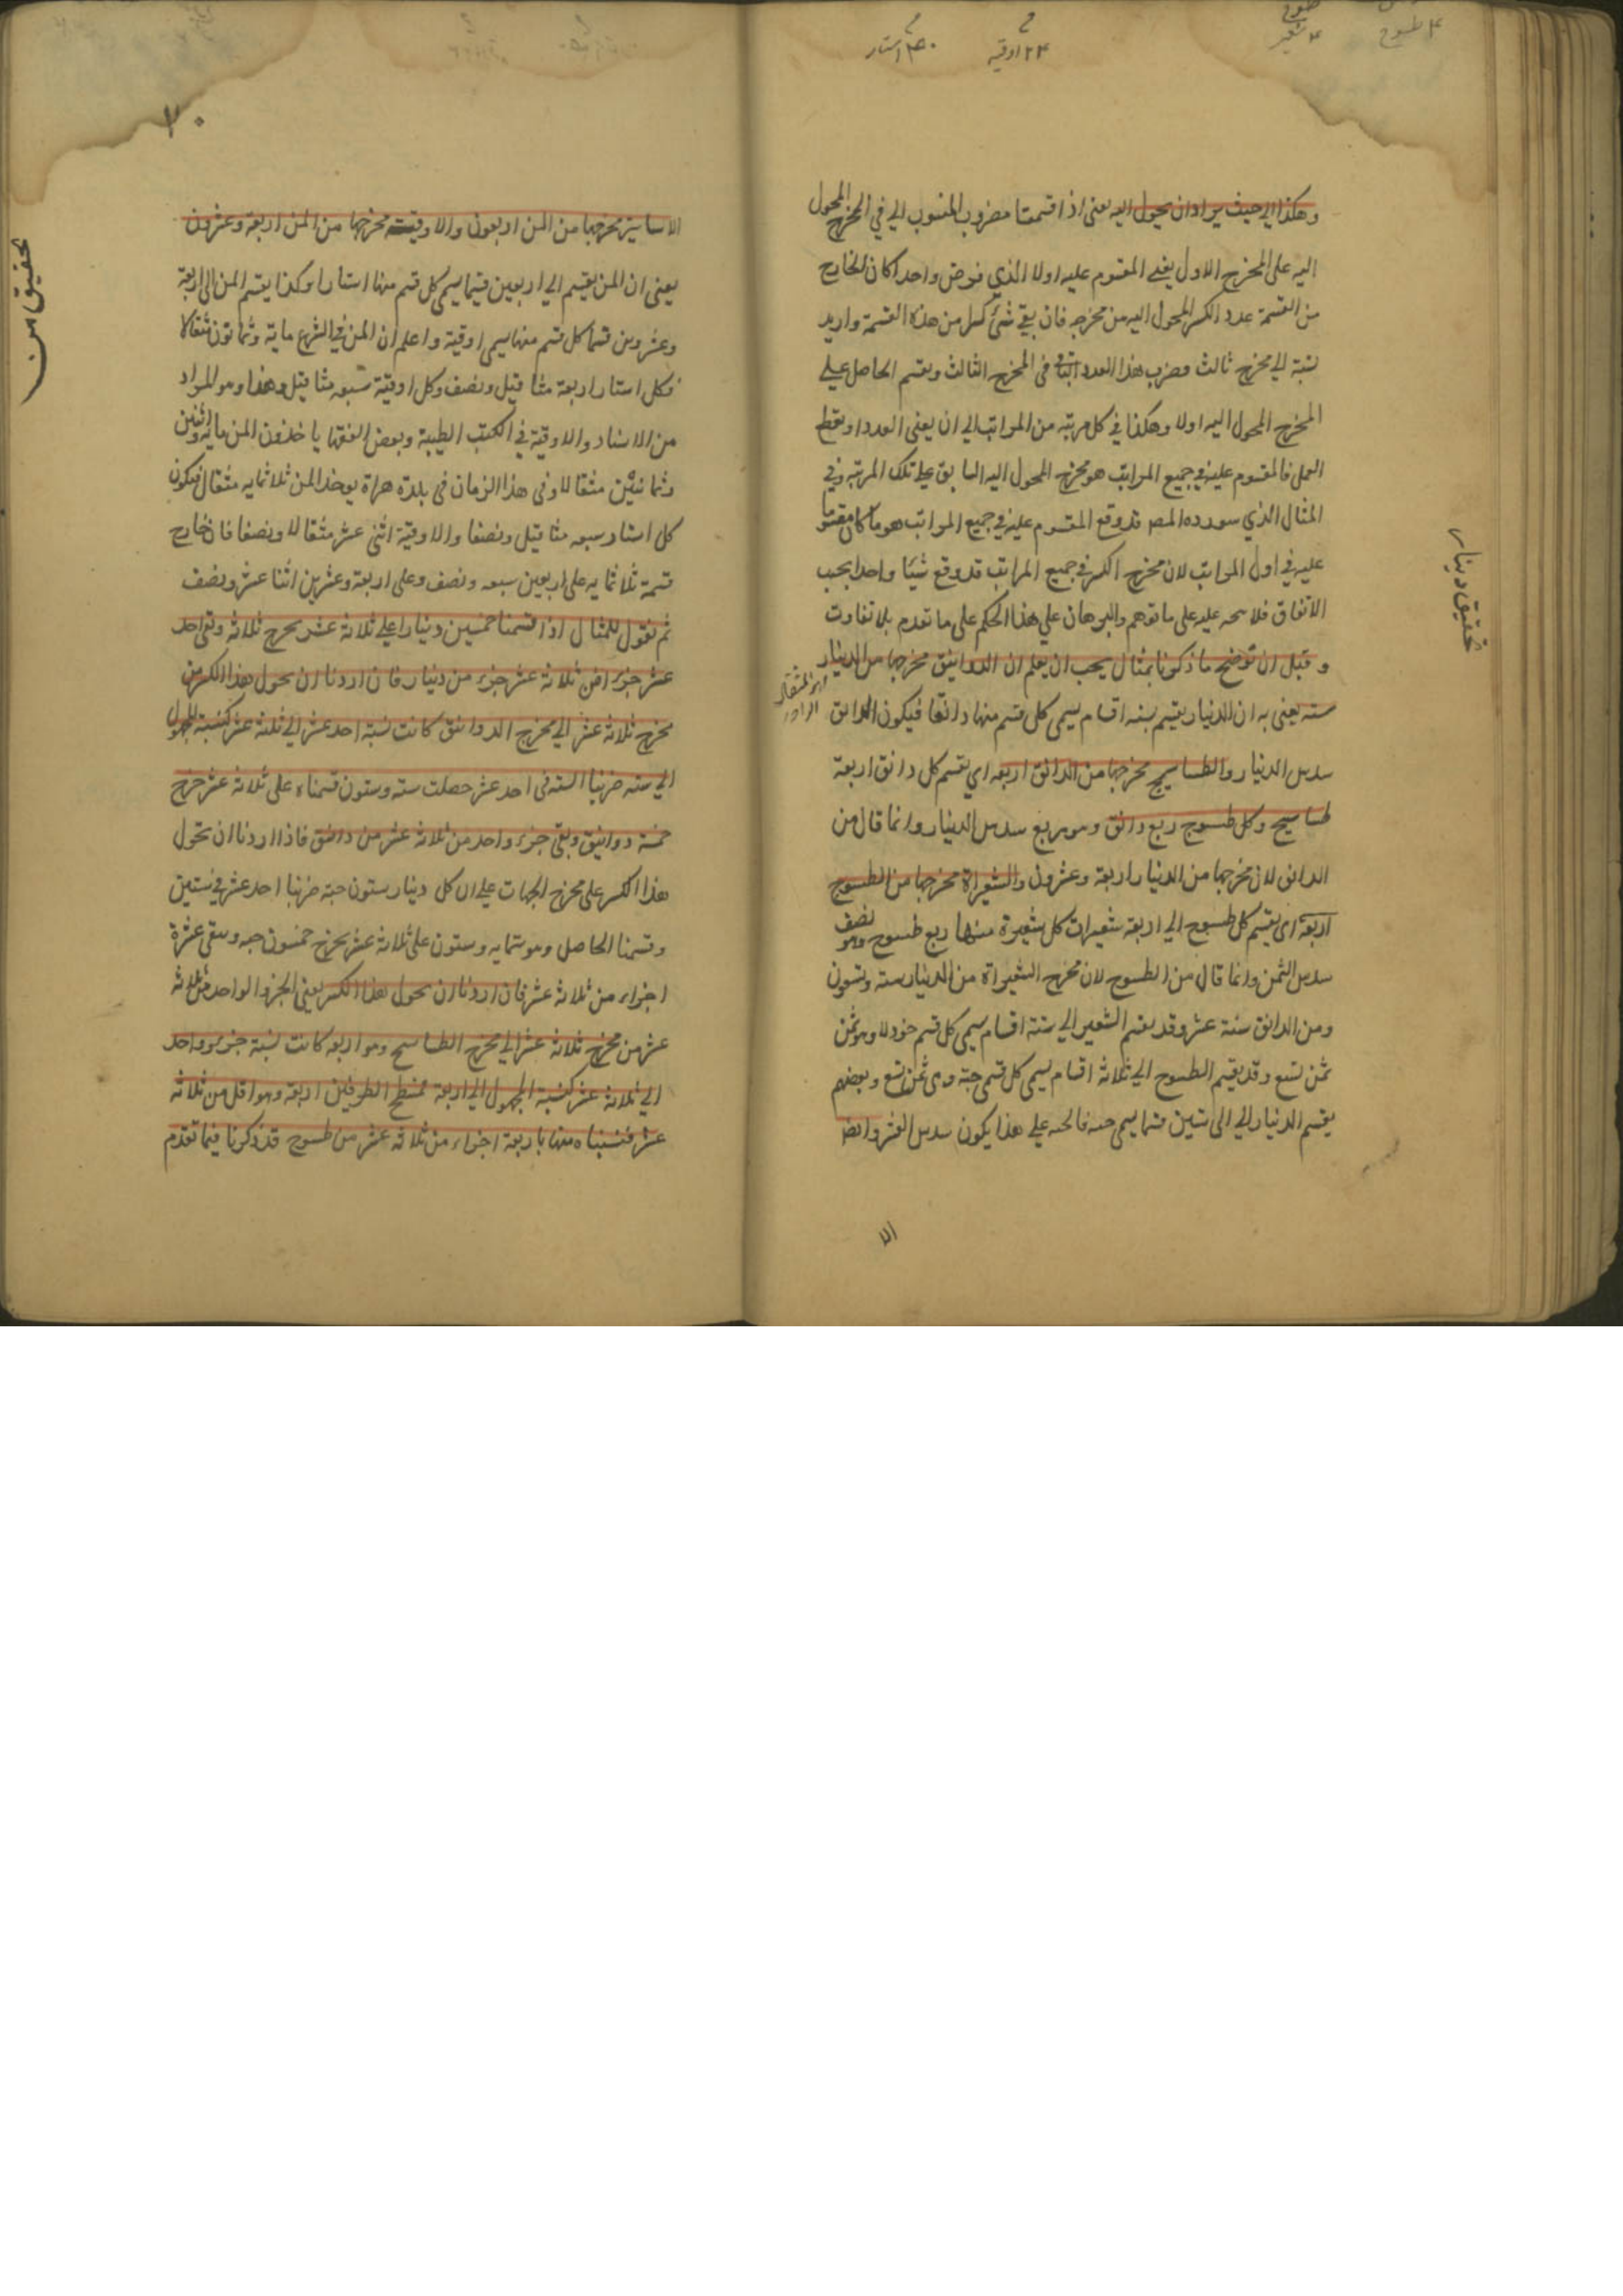 وهكذا الى حيث يراد ان يحول اليه يعنى اذا قسمنا مضروب المنسوب اليه في المخرج المحول
اليه على المخرج الاول يعنى المقسوم عليه اولا الذي فرض واحدا كان الخارج
من القسمة عدد الكسر المحول اليه من مخرجه فان بقي شئ كسر من هذه القسمة واريد
نسبته الى مخرج ثالث مضرب هذا العدد الباقى في المخرج الثالث ويقسم الحاصل على
المخرج المحول اليه اولا وهكذا في كل مرتبه من المراتب الى ان يفنى العدد او يقطع
العمل فالمقسوم عليه في جميع المراتب هو مخرج المحول اليه السابق على تلك المرتبه وفي
المثال الذي سورده المصر قد وقع المقسوم عليه في جميع المراتب هو ما كان مقسوما
عليه في اول المراتب لان مخرج الكسر في جميع المراتب قد وقع شيئا واحدا بحسب
الاتفاق فلا على ما توهم والبرهان على هذا الحكم على ما تقدم بلا تفاوت
وقبل ان نوضح ما ذكرنا بمثال يجب ان يعلم ان الدوانيق مخرجها من الدينار
سته يعنى به ان الدينار يقسم بسته اقسام يسمى كل قسم منها دانقا فيكون الدانق
سدس الدينار والطساسيج مخرجها من الدانق اربعه اي يقسم كل دانق اربعة
طساسيج وكل طسوج ربع دانق وهو ربع سدس الدينار وانما قال من
الدانق لان مخرجها من الدينار اربعة وعشرون والشعيراة مخرجها من الطسوج
اربعة اى يقسم كل طسوج الى اربعة شعيرات كل شعيرة منها ربع طسوج وهو نصف
سدس الثمن وانما قال من الطسوج لان مخرج الشعيراة من الدينار سته وتسعون
ومن الدانق ستة عشر وقد يقسم الشعير الى ستة اقسام يسمى كل قسم خردلا وهو ثمن
ثمن تسع وقد يقسم الطسوج الى ثلاثة اقسام يسمى كل قسم حبة وهى ثمن تسع وبعضهم
يقسم الدينار الى الى ستين قسما يسمى حبه فالحبه على هذا يكون سدس العشر وايضا
الاساتير مخرجها من المن اربعون والاوقية مخرجها من المن اربعة وعشرون
يعنى ان المن يقسم الى اربعين قسما يسمى كل قسم منها استارا وكذا يقسم المن الى اربعة
وعشرين قسما كل قسم منها يسمى اوقية واعلم ان المن في الشرع ماية وثمانون مثقالا
فكل استار اربعة مثاقيل ونصف وكل اوقية سبعه مثاقيل ونصف وهذا وهو المراد
من الاستار والاوقية في الكتب الطبية وبعض الفقها ياخذون المن مايه واثنين
وثمانين مثقالا وفى هذا الزمان في بلدة هراة يوخذ المن ثلاثمايه مثقال فيكون
كل استار سبعه مثاقيل ونصفا والاوقية اثنى عشر مثقالا ونصفا فان خارج
قسمة ثلاثمايه على اربعين سبعه ونصف وعلى اربعة وعشرين اثنا عشر ونصف
ثم نقول للمثال اذا قسمنا خمسين دينارا على ثلاثة عشر يخرج ثلاثة وبقى احد
عشر جزءا من ثلاثة عشر جزء من دينار فان اردنا ان نحول هذا الكسر من
مخرج ثلاثة عشر الى مخرج الدوانيق كانت نسبة احد عشر الى ثلثة عشر كنسبة المجهول
الى سته ضربنا السته في احد عشر حصلت سته وستون قسمناه على ثلاثة عشر خرج
خمسة دوانيق وبقى جزء واحد من ثلاثة عشر من دانق فاذا اردنا ان نحول
هذا الكسر على مخرج الحبات على ان كل دينار ستون حبة ضربنا احد عشر في ستين
وقسمنا الحاصل وهو ستمايه وستون على ثلاثة عشر يخرج خمسون حبه ويبقى عشرة
اجزاء من ثلاثة عشر فان اردنا ان نحول هذا الكسر يعنى الجزء الواحد من ثلاثة
عشر من مخرج ثلاثة عشر الى مخرج الطساسيج وهو اربعه كانت نسبة جزء واحد
الى ثلاثة عشر كنسبة المجهول الى اربعة فمسطح الطرفين اربعة وهو اقل من ثلاثة
عشر فنسبناه منها باربعة اجزاء من ثلاثة عشر من طسوج قد ذكرنا فيما تقدم
تحقيق دينار
تحقيق من
٢٤ اوقيه
٤٠ استار
٤ طسوج
٤ شعير
٢٠